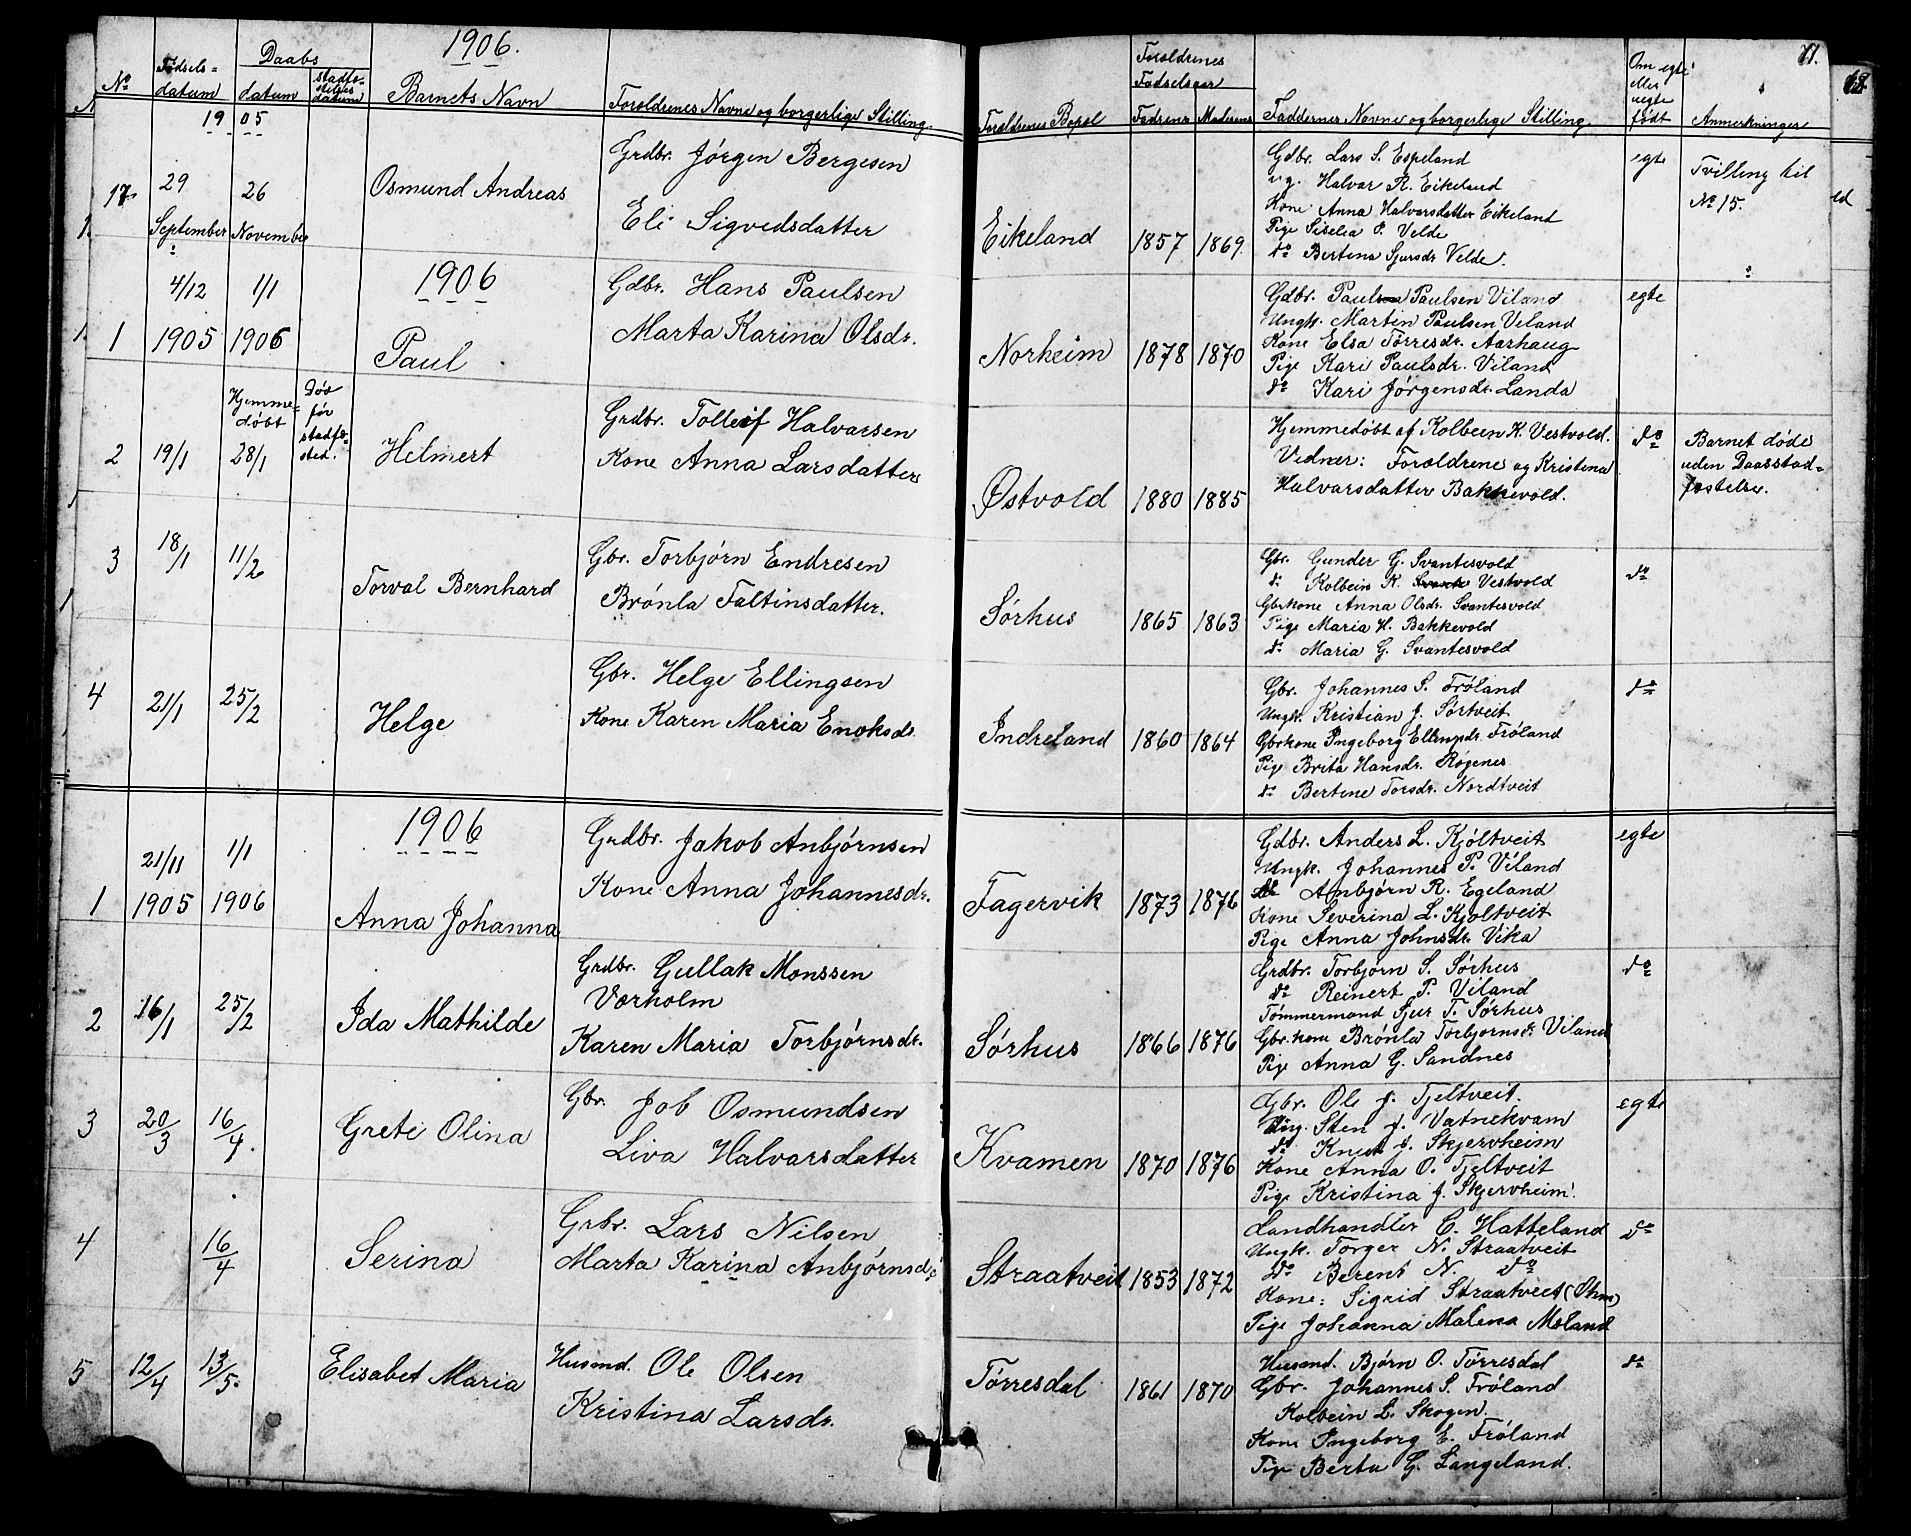 1906.
No
Fødsels=
datum
Daabs
datum
stadfæ-
stelses
datum
Barnets Navn
Forældrenes Navne og borgerlige Stilling.
1905
17
29
September
26
November
Osmund Andreas
Grdbr. Jørgen Bergesen
Eli Sigvedsdatter
1906
1
4/12
1905
1/1
1906
Paul
Gdbr. Hans Paulsen
Marta Karina Olsdr.
2
19/1
Hjemme=
døbt
28/1
Død
før
stadfæ-
sted.
Helmert
Grdbr. Tolleif Halvarsen
Kone Anna Larsdatter
3
18/1
11/2
Torval Bernhard
Gbr. Torbjørn Endresen
Brønla Faltinsdatter.
4
21/1
25/2
Helge
Gbr. Helge Ellingsen
Kone Karen Maria Enoksdr.
1906
1
21/11
1905
1/1
1906
Anna Johanna
Grdbr. Jakob Anbjørnsen
Kone Anna Johannesdr.
2
16/1
25/2
Ida Mathilde
Grdbr. Gullak Monssen
Vorholm
Karen Maria Torbjørnsdr.
3
20/3
16/4.
Grete Olina
Gbr. Job Osmundsen
Liva Halvarsdatter
4
16/4
Serina
Grbr. Lars Nilsen
Marta Karina Anbjørnsdr.
5
12/4
13/5.
Elisabet Maria
Husmd. Ole Olsen
Kristina Larsdr.
11.
Forældrenes Bopæl
Forældrenes
Fødselsaar
Fadrens
Moderens
Faddernes Navne og borgerlige Stilling
Om egte
eller
uegte
født
Anmerkninger
Eikeland 1857 1869.
Gdbr. Lars S. Espeland
ug. Halvar R. Eikeland
Kone Anna Halvarsdatter Eikeland
Pige Siselia P. Velde
do Bertena Sjursdr Velde.
egte
Tvilling til
No 15.
Norheim 1878 1870
Gdbr. Paulsen Paulsen Viland
Ungk. Martin Paulsen Veland
Kone Elsa Torresdr. Aarhaug
Pige Kari Paulsdr. Viland
do Kari Jørgensdr. Landa
egte
Østvold 1880 1885
Hjemmedøbt af Kolbein K. Vestvold.
Vidner: Forældrene og Kristena
Halvarsdatter Bakkevold.
do
Barnet døde
uden Daabsstad=
fæstelse.
Sørhus 1865 1863
Gbr. Gunder G. Svantesvold
do Kolbein K. Vestvold
Gbrkone Anna Olsdr. Svantesvold
Pige Maria H. Bakkevold
do Maria G. Svantesvold
do
Indreland 1860 1864
Gbr. Johannes S. Frøland
Ungk. Kristian J. Sørtveit
Gbrkone Ingeborg Ellingsdr. Frøland
Pige Brita Hansdr. Røgenes
do Bertine Torsdr. Nordtveit
do
Fagervik 1873 1876
Gdbr. Anders L. Kjøltveit
Ungk. Johannes P. Viland
do Anbjørn R. Egeland
Kone Severina L. Kjøltveit
Pige Anna Johnsdr. Vika
egte
Sørhus 1866 1876
Grdbr. Torbjørn S. Sørhus
do Reinert P. Viland
Tømmermand Sjur T. Sørhus
Gbr.kone Brønla Torbjørnsdr. Viland
Pige Anna G. Sandnes
do
Kvamen 1870 1876
Gbr. Ole J. Tjeltveit.
Ung. Sten J. Vatnekvam
do Knut J. Skjervheim
Kone Anna O. Tjeltveit
Pige Kristina J. Skjervheim.
egte
Straatveit 1853 1872
Landhandler C. Hatteland
Ungk. Torger N. Straatveit
do Berent N. do
Kone: Sigrid Straatveit
Pige Johanna Malena Møland
do
Tørresdal 1861 1870
Husmd. Bjørn O. Tørresdal
Gbr. Johannes S. Frøland
Kolbein L. Skogen.
Kone Ingeborg E. Frøland
Pige Berta G. Langeland.
do